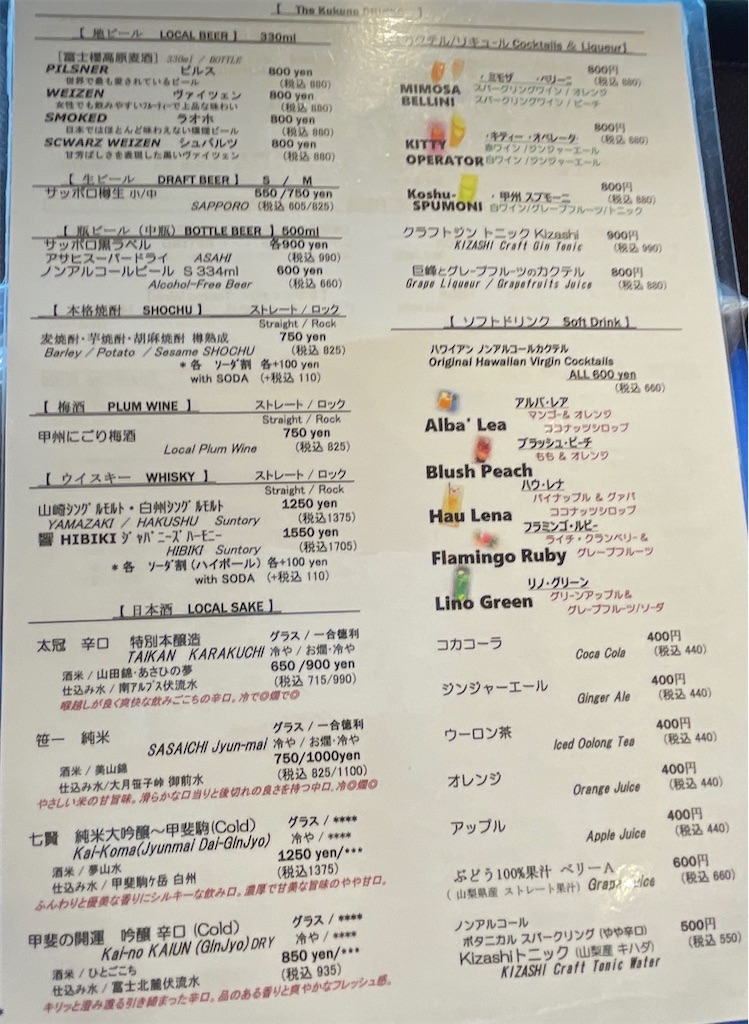 【 The Kukuna
【 地ビール LOCAL BEER 】 330ml
［富士櫻高原麦酒］ 330ml / BOTTLE
PILSNER ピルス 800 yen
世界で最も愛されているビール (税込 880)
WEIZEN ヴァイツェン 800 yen
女性でも飲みやすいフルーティーで上品な味わい (税込 880)
SMOKED ラオホ 800 yen
日本ではほとんど味わえない燻煙ビール (税込 880)
SCWARZ WEIZEN シュバルツ 800 yen
甘芳ばしさを表現した黒いヴァイツェン (税込 880)
【 生ビール DRAFT BEER 】 S / M
サッポロ樽生 小/中 550 /750 yen
SAPPORO (税込 605/825)
【 瓶ビール（中瓶）BOTTLE BEER 】500ml
サッポロ黒ラベル 各900 yen
アサヒスーパードライ ASAHI (税込 990)
ノンアルコールビール S 334ml 600 yen
Alcohol-Free Beer (税込 660)
【 本格焼酎 SHOCHU 】 ストレート / ロック
Straight / Rock
麦焼酎・芋焼酎・胡麻焼酎 樽熟成 750 yen
Barley / Potato / Sesame SHOCHU (税込 825)
* 各 ソーダ割 各+100 yen
with SODA (+税込 110)
【 梅酒 PLUM WINE 】 ストレート / ロック
Straight / Rock
甲州にごり梅酒 750 yen
Local Plum Wine (税込 825)
【 ウイスキー WHISKY 】 ストレート / ロック
Straight / Rock
山崎シングルモルト・白州シングルモルト 1250 yen
YAMAZAKI / HAKUSHU Suntory (税込1375)
響 HIBIKI ジャパニーズハーモニー 1550 yen
HIBIKI Suntory (税込1705)
* 各 ソーダ割（ハイボール）各+100 yen
with SODA (+税込 110)
【 日本酒 LOCAL SAKE 】
太冠 辛口 特別本醸造 グラス / 一合徳利
TAIKAN KARAKUCHI 冷や / お燗･冷や
酒米 / 山田錦･あさひの夢 650 /900 yen
仕込み水 / 南アルプス伏流水 (税込 715/990)
喉越しが良く爽快な飲みごこちの辛口。冷で◎燗で◎
笹一 純米 グラス / 一合徳利
SASAICHI Jyun-mai 冷や / お燗･冷や
酒米 / 美山錦 750/1000yen
仕込み水/大月笹子峠 御前水 (税込 825/1100)
やさしい米の甘旨味。滑らかな口当りと後切れの良さを持つ中口。冷◎燗◎
七賢 純米大吟醸～甲斐駒(Cold) グラス / ****
Kai-Koma(Jyunmai Dai-GInJyo) 冷や / ****
酒米 / 夢山水 1250 yen/***
仕込み水 / 甲斐駒ケ岳 白州 (税込1375)
ふんわりと優美な香りにシルキーな飲み口。濃厚で甘美な旨味のやや甘口。
甲斐の開運 吟醸 辛口 (Cold) グラス / ****
Kai-no KAIUN (GInJyo) DRY 冷や / ****
酒米 / ひとごこち 850 yen/***
仕込み水 / 富士北麓伏流水 (税込 935)
キリッと澄み渡る引き締まった辛口。品のある香りと爽やかなフレッシュ感。
カクテル/リキュール Cocktails & Liqueur】
・ミモザ ・ベリーニ 800円
MIMOSA スパークリングワイン / オレンジ (税込 880)
BELLINI スパークリングワイン / ピーチ
・キティー ・オペレータ 800円
KITTY 赤ワイン / ジンジャーエール (税込 880)
OPERATOR 白ワイン / ジンジャーエール
Koshu- ・甲州 スプモーニ 800円
SPUMONI 白ワイン/グレープフルーツ/トニック (税込 880)
クラフトジン トニック Kizashi 900円
KIZASHI Craft Gin Tonic (税込 990)
巨峰とグレープフルーツのカクテル 800円
Grape Liqueur / Grapefruits Juice (税込 880)
【 ソフトドリンク Soft Drink 】
ハワイアン ノンアルコールカクテル
Original Hawaiian Virgin Cocktails
ALL 600 yen
(税込 660)
アルバ・レア
Alba' Lea マンゴー& オレンジ
ココナッツシロップ
ブラッシュ・ピーチ
Blush Peach もも & オレンジ
ハウ・レナ
Hau Lena パイナップル & グァバ
ココナッツシロップ
フラミンゴ・ルビー
Flamingo Ruby ライチ・クランベリー&
グレープフルーツ
リノ・グリーン
Lino Green グリーンアップル&
グレープフルーツ/ソーダ
コカコーラ 400円
Coca Cola (税込 440)
ジンジャーエール 400円
Ginger Ale (税込 440)
ウーロン茶 400円
Iced Oolong Tea (税込 440)
オレンジ 400円
Orange Juice (税込 440)
アップル 400円
Apple Juice (税込 440)
ぶどう100%果汁 ベリーA 600円
( 山梨県産 ストレート果汁) (税込 660)
ノンアルコール
ボタニカル スパークリング (やや辛口) 500円
Kizashiトニック (山梨産 キハダ) (税込 550)
KIZASHI Craft Tonic Water